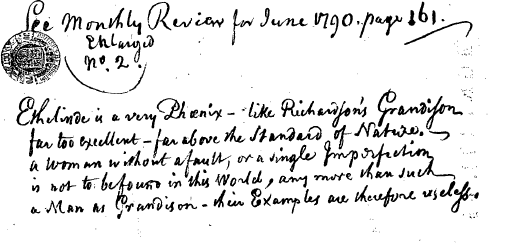 See Monthly Review for June 1790. page 161.
Enlarged
No. 2.
Ethelinde is a very Phœnix – like Richardson's Grandison
far too excellent – far above the Standard of Nature.
a Woman without a fault, or a single Imperfection
is not to be found in this World, any more than such
a Man as Grandison – their Examples are therefore useless.